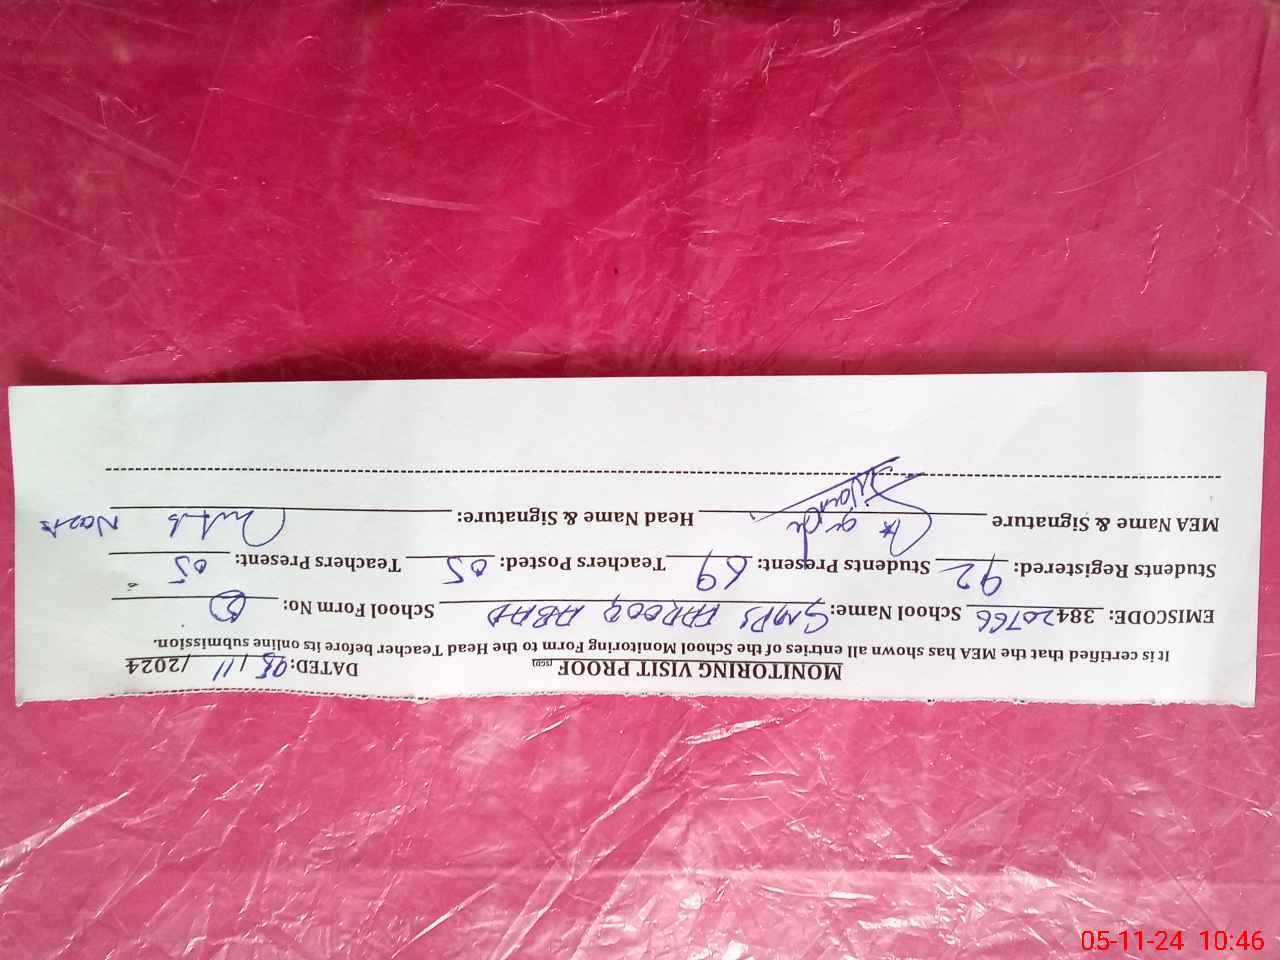 MONITORING VISIT PROOF (SGD) DATED: 05/11/2024
It is certified that the MEA has shown all entries of the School Monitoring Form to the Head Teacher before its online submission.
EMISCODE: 38420766 School Name: GMPS FAROOQ ABAD School Form No:
Students Registered: 92 Students Present: 69 Teachers Posted: 05 Teachers Present: 05
MEA Name & Signature Head Name & Signature:
05-11-24 10:46